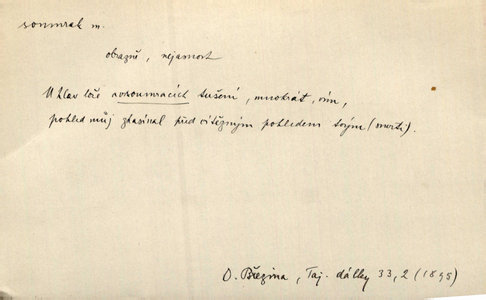 soumrak m.
obrazně, nejasnost
U hlav lože v soumracích tušení, mnohrát, vím,
pohled můj zhasínal před vítězným pohledem tvým (smrti).
O. Březina, Taj. dálky 33, 2 (1895)